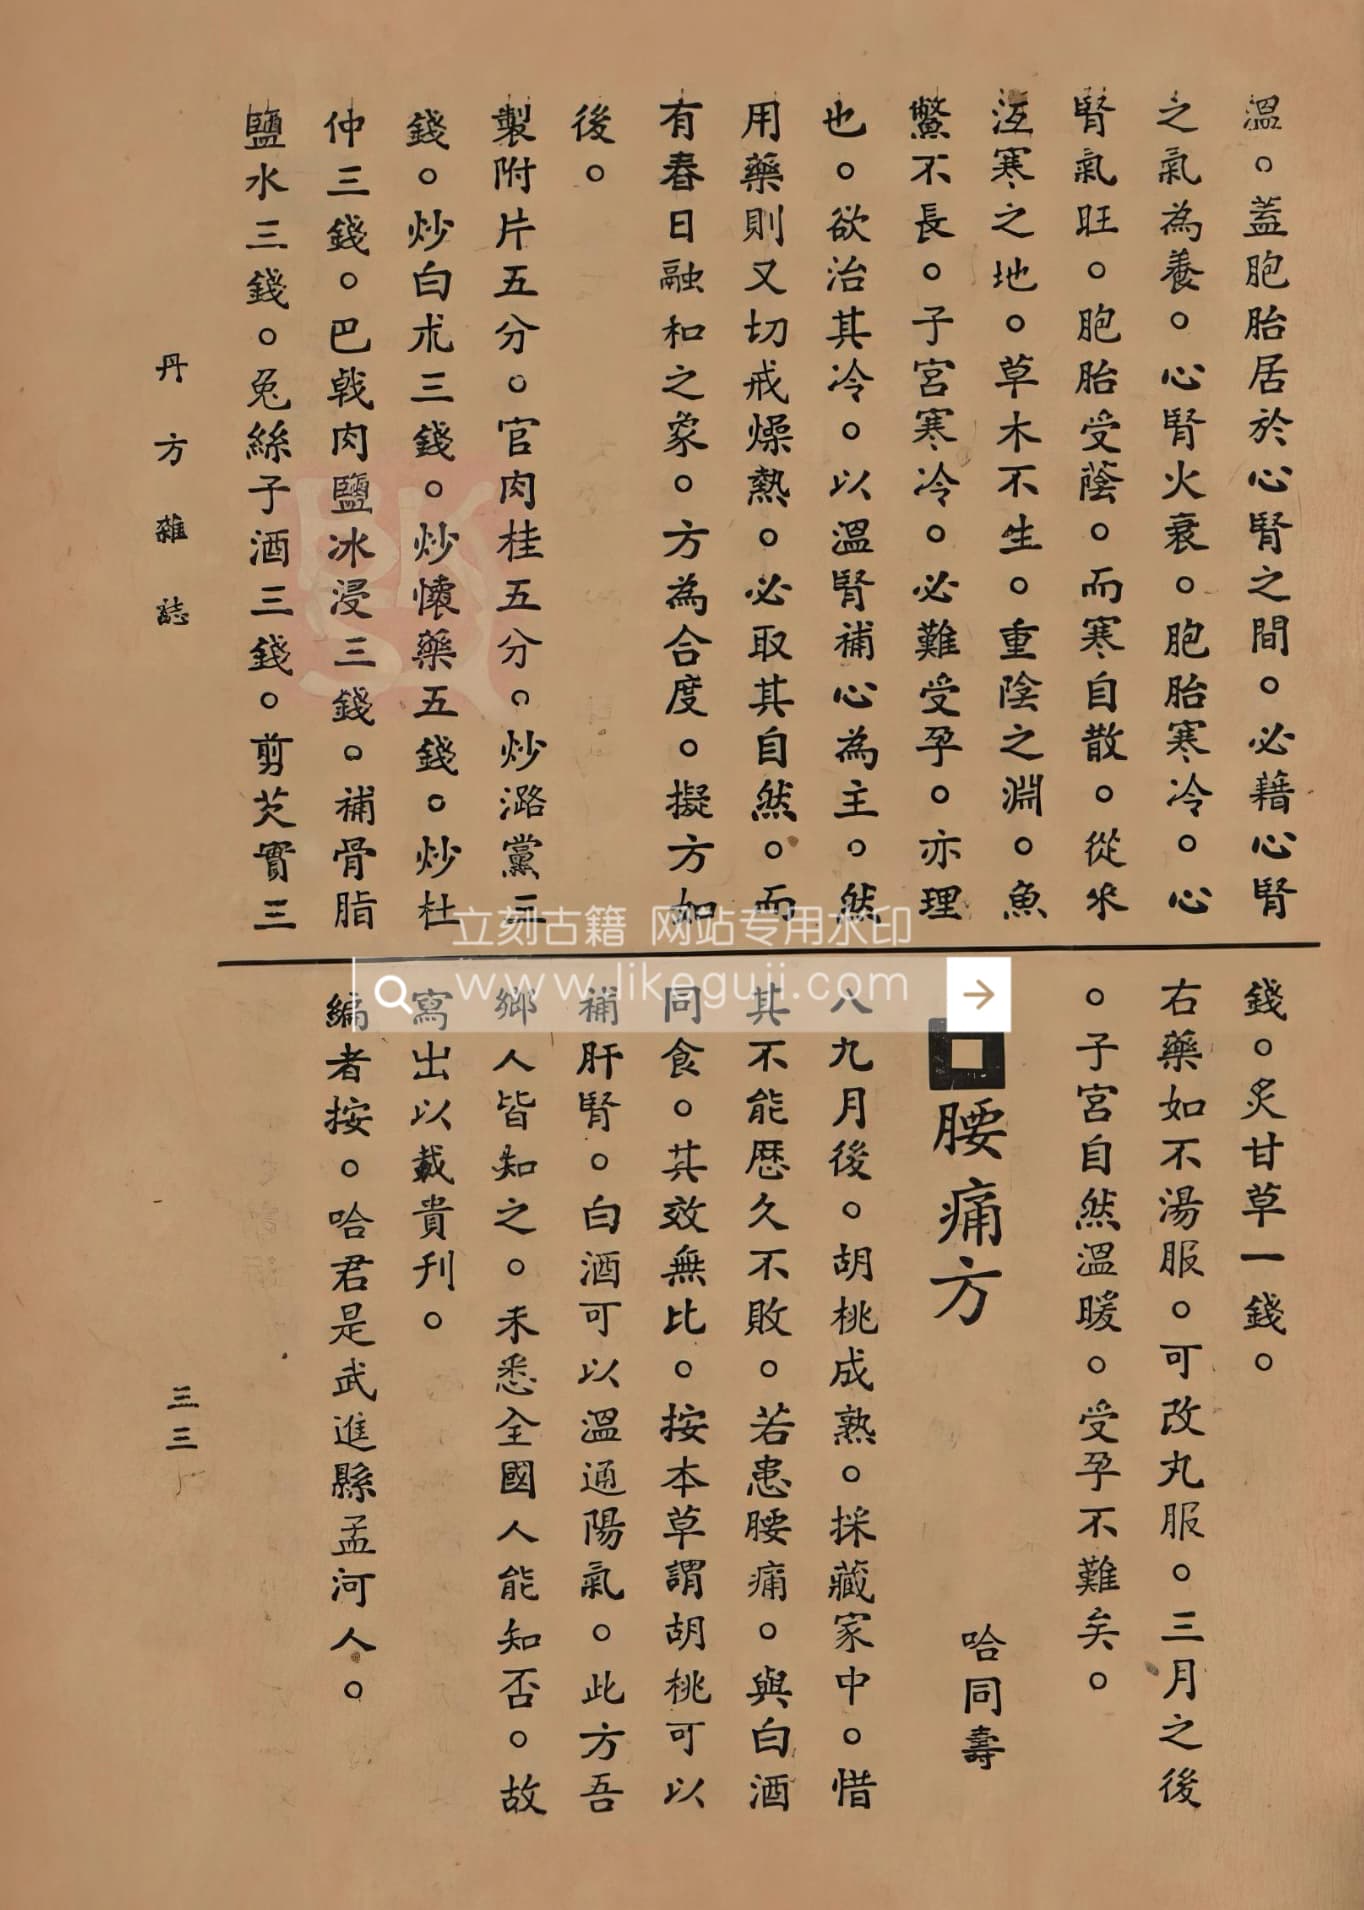 溫。蓋胞胎居於心腎之間。必藉心腎
之氣為養。心腎火衰。胞胎寒冷。心
腎氣旺。胞胎受蔭。而寒自散。從來
沍寒之地。草木不生。重陰之淵。魚
鱉不長。子宮寒冷。必難受孕。亦理
也。欲治其冷。以溫腎補心為主。然
用藥則又切戒燥熱。必取其自然。而
有春日融和之象。方為合度。擬方如
後。
製附片五分。官肉桂五分。炒潞黨三
錢。炒白朮三錢。炒懷藥五錢。炒杜
仲三錢。巴戟肉鹽冰浸三錢。補骨脂
鹽水三錢。兔絲子酒三錢。剪芡實三
錢。炙甘草一錢。
右藥如不湯服。可改丸服。三月之後
。子宮自然溫暖。受孕不難矣。
腰痛方
哈同壽
八九月後。胡桃成熟。採藏家中。惜
其不能歷久不敗。若患腰痛。與白酒
同食。其效無比。按本草謂胡桃可以
補肝腎。白酒可以溫通陽氣。此方吾
鄉人皆知之。未悉全國人能知否。故
寫出以載貴刊。
編者按。哈君是武進縣孟河人。
丹方雜誌
三三
立刻古籍 网站专用水印
www.likeguji.com